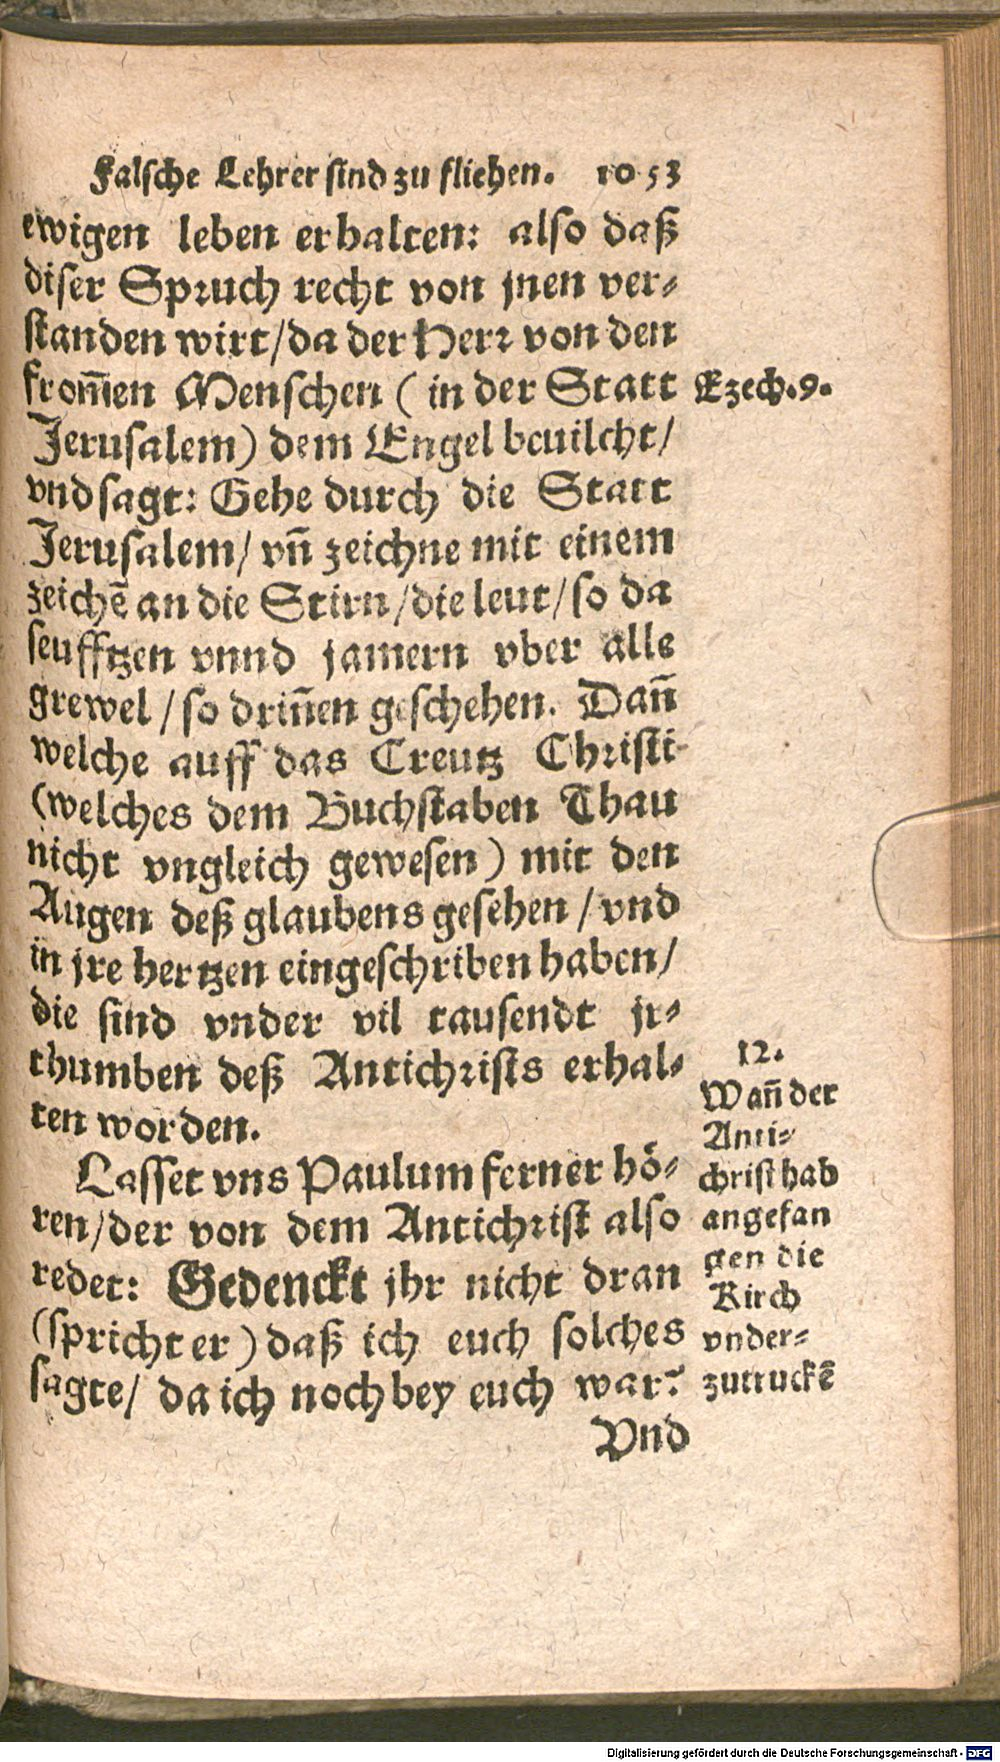 Falsche Lehrer sind zu fliehen. 1053
ewigen leben erhalten: also daß
diser Spruch recht von jnen ver-
standen wirt/da der Herr von den
from̃en Menschen (in der Statt
Ezech.9.
Jerusalem) dem Engel beuilcht/
vnd sagt: Gehe durch die Statt
Jerusalem/ vñ zeichne mit einem
zeichẽ an die Stirn/die leut/so da
seufftzen vnnd jamern vber alle
grewel/so driñen geschehen. Dañ
welche auff das Creutz Christi
(welches dem Buchstaben Thau
nicht vngleich gewesen) mit den
Augen deß glaubens gesehen/vnd
in jre hertzen eingeschriben haben/
die sind vnder vil tausendt jr-
thumben deß Antichrists erhal-
ten worden.
Lasset vns Paulum ferner hö-
ren/der von dem Antichrist also
redet: Gedenckt jhr nicht dran
(spricht er) daß ich euch solches
sagte/ da ich noch bey euch war?
12.
Wañ der
Anti-
christ hab
angefan
gen die
Kirch
vnder-
zutruckẽ
Vnd
Digitalisierung gefördert durch die Deutsche Forschungsgemeinschaft - DFG